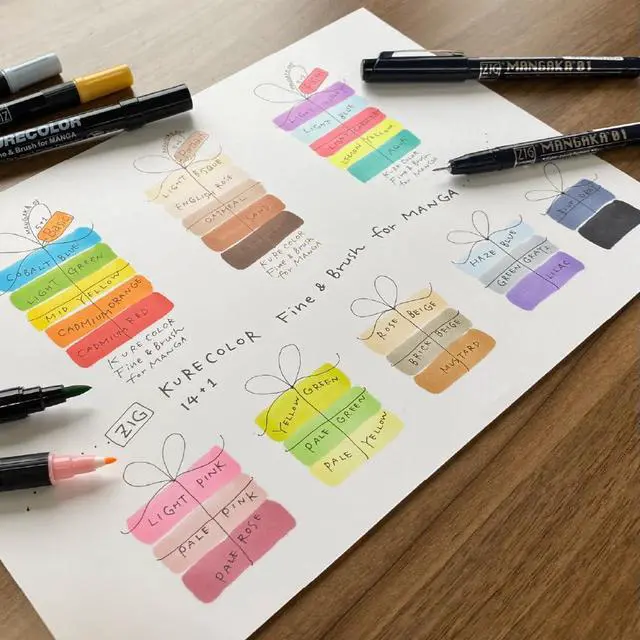 17
KURECOLOR
Fine & Brush for MANGA
ZIG MANGAKA 01
ZIG MANGAKA 01
Base
COBALT BLUE
LIGHT GREEN
MID YELLOW
CADMIUM ORANGE
CADMIUM RED
KURECOLOR
Fine & Brush
for MANGA
LIGHT BISQUE
ENGLISH ROSE
OATMEAL
SAND
KURECOLOR
Fine & Brush
for MANGA
LIGHT
LIGHT BLUE
LEMON YELLOW
KURECOLOR
Fine & Brush
for MANGA
ZIG KURECOLOR Fine & Brush for MANGA
14+1
LIGHT PINK
PALE PINK
PALE ROSE
YELLOW GREEN
PALE GREEN
PALE YELLOW
ROSE BEIGE
BRICK BEIGE
MUSTARD
HAZE BLUE
GREEN GRAY2
LILAC